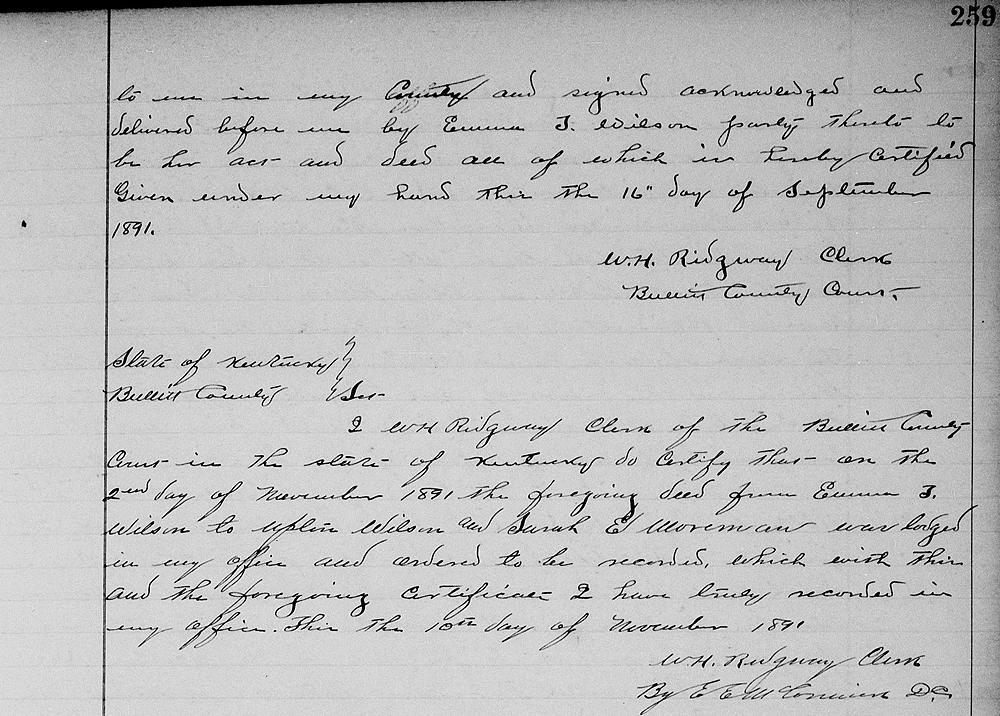 259
to me in my County and signed acknowledged and
delivered before me by Emma T. Wilson party thereto to
be her act and deed all of which is hereby certified
Given under my hand this the 16" day of September
1891.
W.H. Ridgway Clerk
Bullitt County Court.
State of Kentucky }
Bullitt County } Sct
I WH Ridgway Clerk of the Bullitt County
Court in the state of Kentucky do certify that on the
2nd day of November 1891 the foregoing deed from Emma T.
Wilson to Wilson and Sarah E Moreman was lodged
in my office and ordered to be recorded, which with this
and the foregoing certificate I have truly recorded in
my office. This the 10th day of November 1891
W.H. Ridgway Clerk
By E E McCormick D.C.